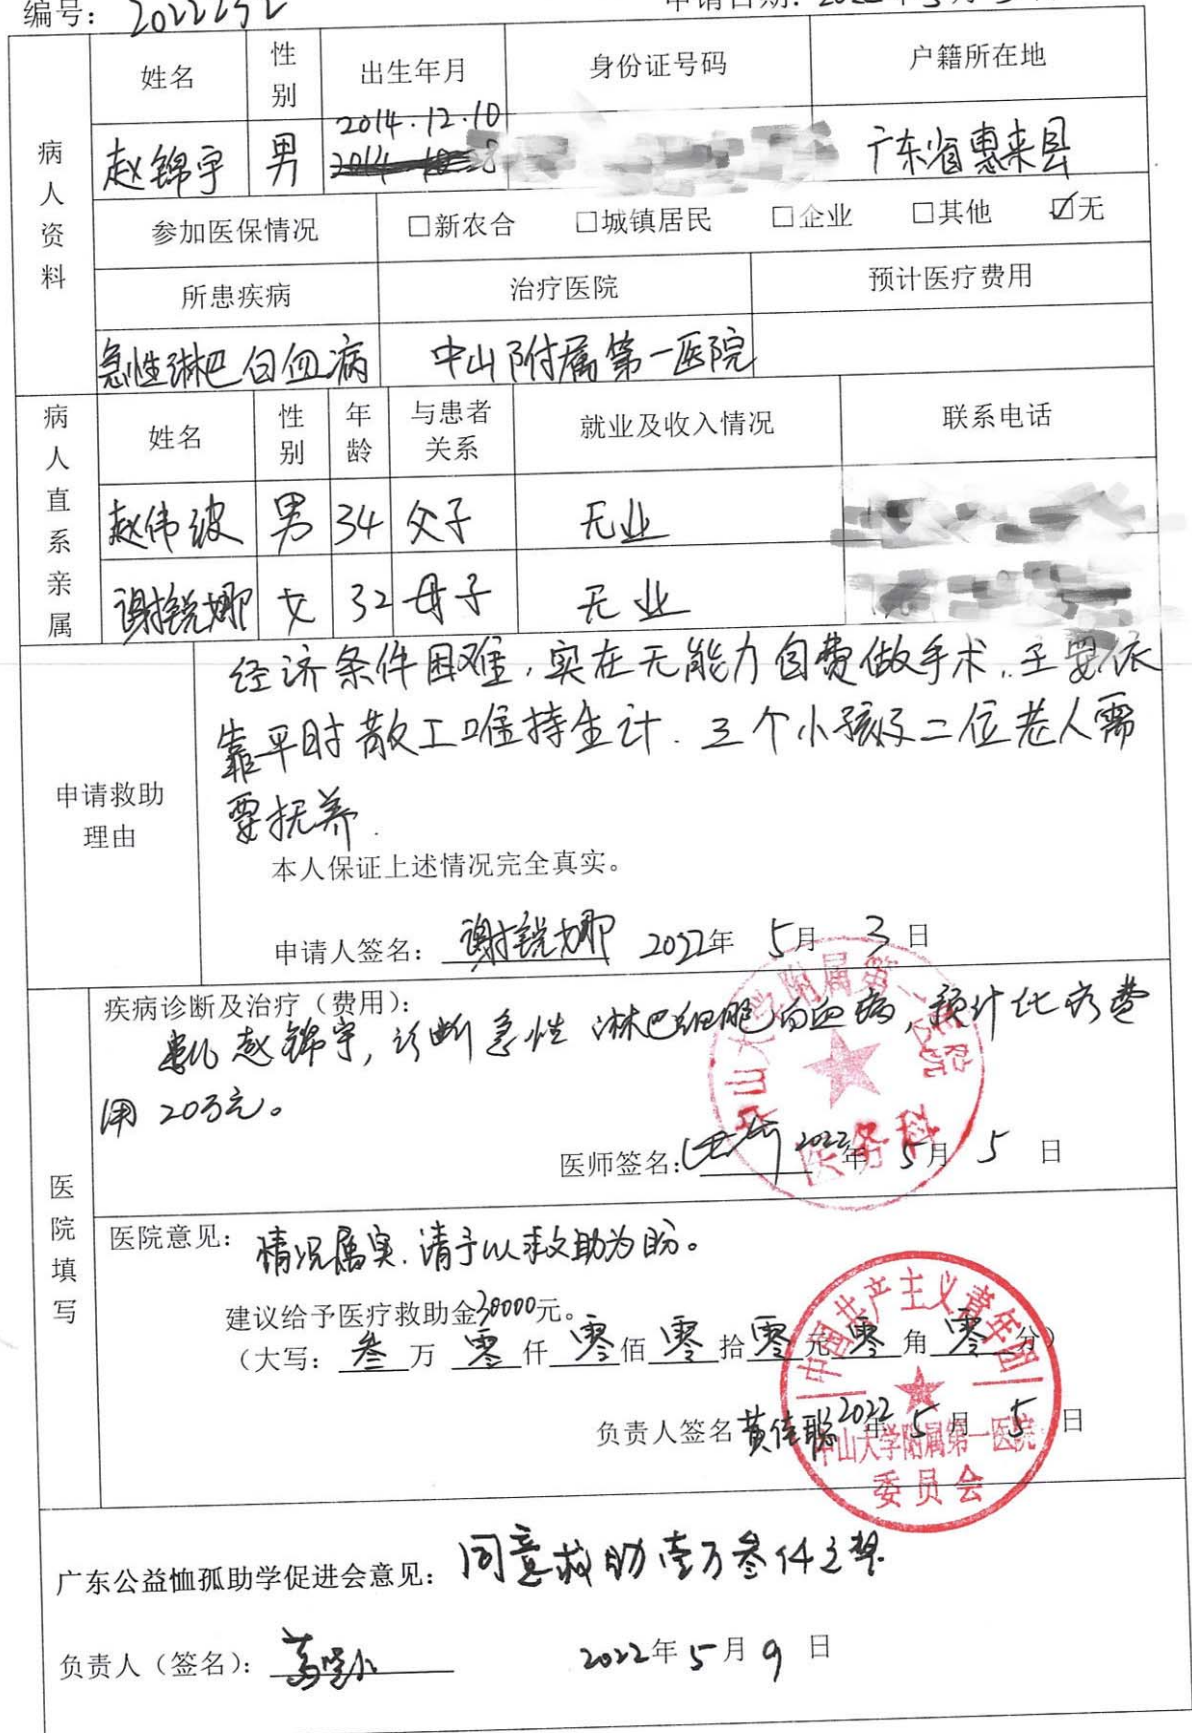 编号：2022252
申请日期：2022年5月3
病人资料
姓名 性别 出生年月 身份证号码 户籍所在地
赵锦宇 男 2014.12.10 广东省惠来县
参加医保情况 □新农合 □城镇居民 □企业 □其他 ☑无
所患疾病 治疗医院 预计医疗费用
急性淋巴白血病 中山附属第一医院
病人直系亲属
姓名 性别 年龄 与患者关系 就业及收入情况 联系电话
赵伟波 男 34 父子 无业
谢锐娜 女 32 母子 无业
申请救助理由
经济条件困难，实在无能力自费做手术，主要依
靠平时散工唯持生计．三个小孩及二位老人需
要抚养．
本人保证上述情况完全真实。
申请人签名：谢锐娜 2022年 5月 3日
医院填写
疾病诊断及治疗（费用）：
患儿赵锦宇，诊断急性淋巴细胞白血病，预计化疗费
用20万元。
中山大学附属第一医院
医务科
医师签名： 2022年 5月 5日
医院意见：情况属实．请予以救助为盼。
建议给予医疗救助金30000元。
（大写：叁万零仟零佰零拾零元零角零分）
负责人签名 黄佳聪 2022年 5月 5日
中国共产主义青年团
中山大学附属第一医院
委员会
广东公益恤孤助学促进会意见：同意救助壹万叁仟元整
负责人（签名）： 2022年5月9日